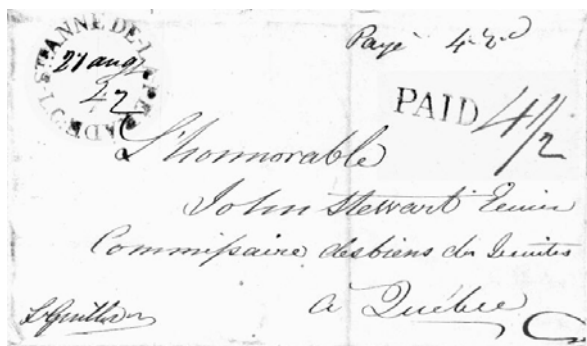 STE ANNE DE LA PERADE L.C.
21 aug
42
Payé 4½d
PAID 4½
L'honnorable
John Stewart
Commissaire des biens des Jesuites
à Québec